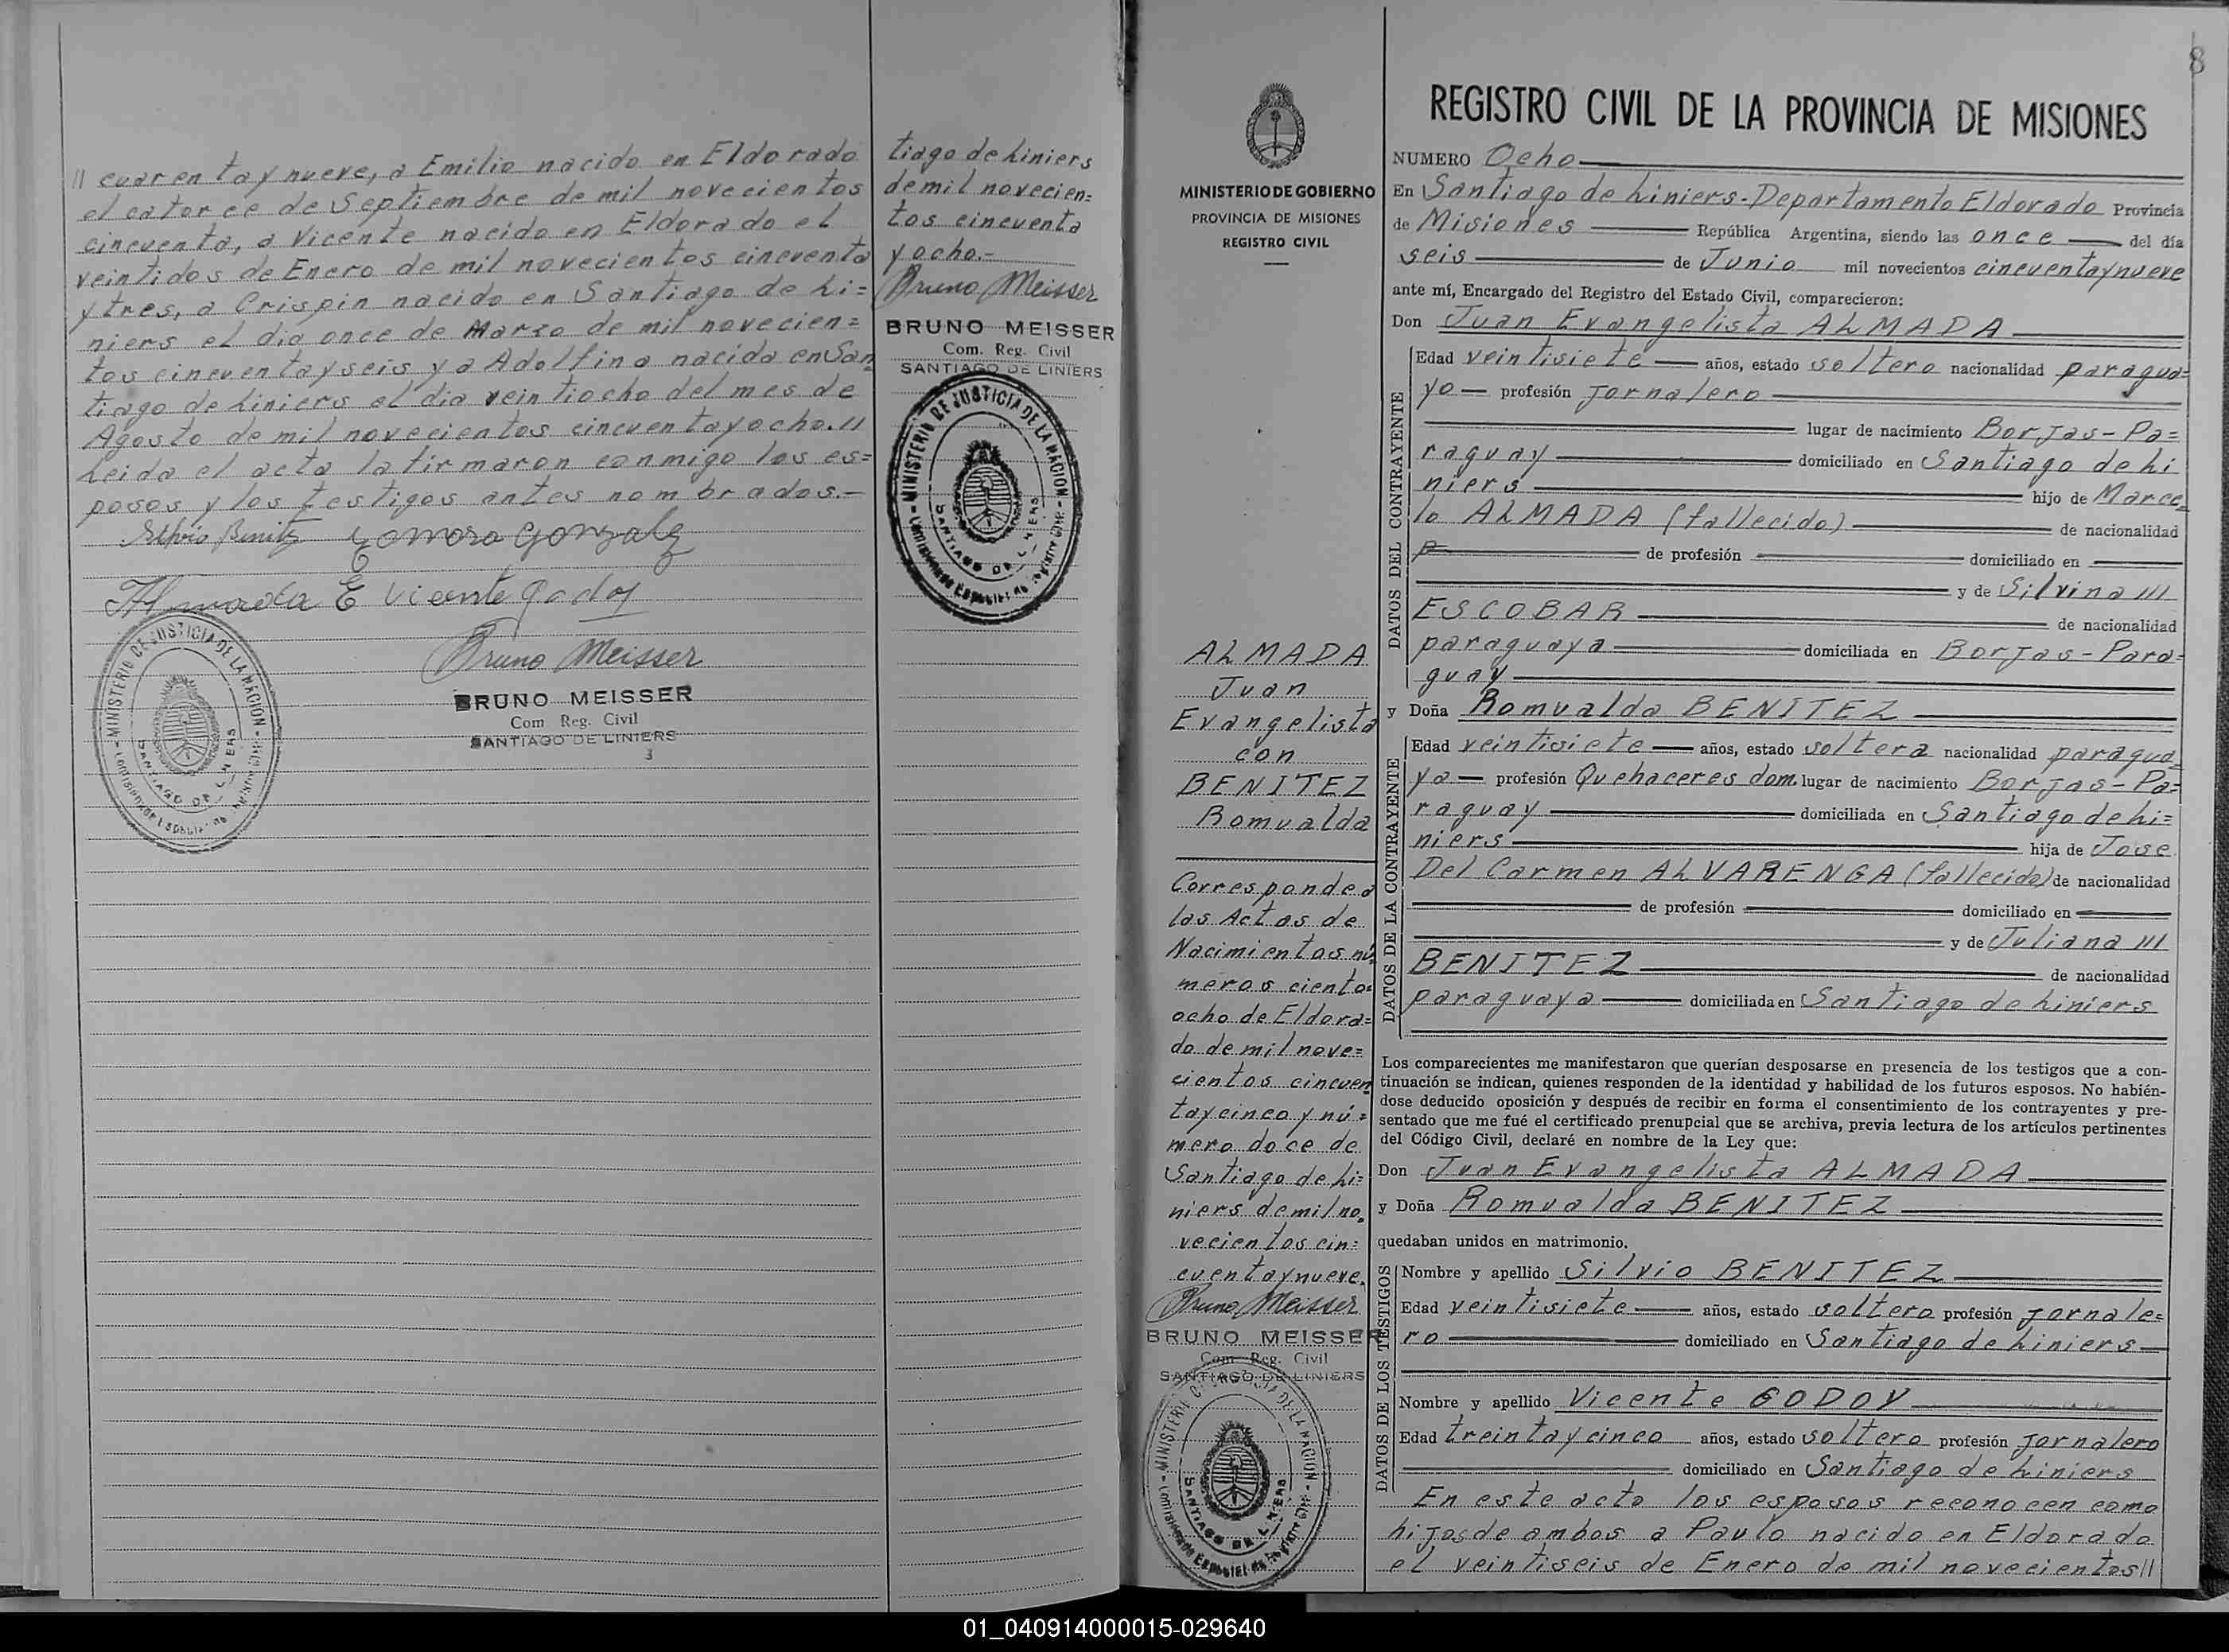 // cuarentaynueve, a Emilio nacido en Eldorado
el catorce de Septiembre de mil novecientos
cincuenta, a Vicente nacido en Eldorado el
veintidos de Enero de mil novecientos cincuenta
ytres, a Crispin nacido en Santiago de Li=
niers el dia once de Marzo de mil novecien=
tos cincuentayseis y a Adolfina nacida en San
tiago de Liniers el dia veintiocho del mes de
Agosto de mil novecientos cincuentayocho.//
Leida el acta la firmaron conmigo los es=
posos y los testigos antes nombrados.-
Silvio Benitz
Almada E Vicente Godoy
Bruno Meisser
BRUNO MEISSER
Com. Reg. Civil
SANTIAGO DE LINIERS
3
MINISTERIO DE JUSTICIA DE LA NACION
SANTIAGO DE LINIERS
tiago de Liniers
de mil novecien=
tos cincuenta
y ocho.-
Bruno Meisser
BRUNO MEISSER
Com. Reg. Civil
SANTIAGO DE LINIERS
MINISTERIO DE JUSTICIA DE LA NACION
SANTIAGO DE LINIERS
MINISTERIO DE GOBIERNO
PROVINCIA DE MISIONES
REGISTRO CIVIL
ALMADA
Juan
Evangelista
con
BENITEZ
Romualda
Corresponde a
las Actas de
Nacimientos nú
meros ciento=
ocho de Eldora=
do de mil nove=
cientos cincuen
taycinco y nú=
mero doce de
Santiago de Li=
niers de mil no=
vecientos cin=
cuentaynueve.
Bruno Meisser
BRUNO MEISSER
Com. Reg. Civil
SANTIAGO DE LINIERS
MINISTERIO DE JUSTICIA DE LA NACION
SANTIAGO DE LINIERS
8
REGISTRO CIVIL DE LA PROVINCIA DE MISIONES
NUMERO Ocho
En Santiago de Liniers-Departamento Eldorado Provincia
de Misiones República Argentina, siendo las once del día
seis de Junio mil novecientos cincuentaynueve
ante mí, Encargado del Registro del Estado Civil, comparecieron:
Don Juan Evangelista ALMADA
DATOS DEL CONTRAYENTE
Edad veintisiete años, estado soltero nacionalidad paragua=
yo profesión Jornalero
lugar de nacimiento Borjas-Pa=
raguay domiciliado en Santiago de Li
niers hijo de Marce
lo ALMADA (fallecido) de nacionalidad
de profesión domiciliado en
y de Silvina ///
ESCOBAR de nacionalidad
paraguaya domiciliada en Borjas-Para=
guay
y Doña Romualda BENITEZ
DATOS DE LA CONTRAYENTE
Edad veintisiete años, estado soltera nacionalidad paragua=
ya profesión Quehaceres dom. lugar de nacimiento Borjas-Pa=
raguay domiciliada en Santiago de Li=
niers hija de Jose
Del Carmen ALVARENGA (fallecido) de nacionalidad
de profesión domiciliado en
y de Juliana ///
BENITEZ de nacionalidad
paraguaya domiciliada en Santiago de Liniers
Los comparecientes me manifestaron que querían desposarse en presencia de los testigos que a con-
tinuación se indican, quienes responden de la identidad y habilidad de los futuros esposos. No habién-
dose deducido oposición y después de recibir en forma el consentimiento de los contrayentes y pre-
sentado que me fué el certificado prenupcial que se archiva, previa lectura de los artículos pertinentes
del Código Civil, declaré en nombre de la Ley que:
Don Juan Evangelista ALMADA
y Doña Romualda BENITEZ
quedaban unidos en matrimonio.
DATOS DE LOS TESTIGOS
Nombre y apellido Silvio BENITEZ
Edad veintisiete años, estado soltero profesión jornale=
ro domiciliado en Santiago de Liniers
Nombre y apellido Vicente GODOY
Edad treintaycinco años, estado soltero profesión Jornalero
domiciliado en Santiago de Liniers
En este acto los esposos reconocen como
hijos de ambos a Paulo nacido en Eldorado
el veintiseis de Enero de mil novecientos//
01_040914000015-029640